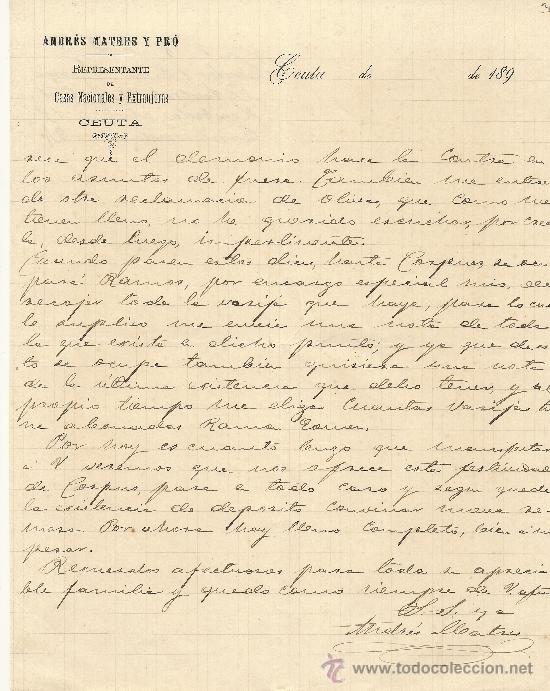 ANDRÉS MATRES Y PRÓ
REPRESENTANTE
DE
Casas Nacionales y Extranjeras
CEUTA
Ceuta de de 189
que el demonio hace la contra en
los asuntos de fuera. Tambien me
de otra reclamacion de que como me
tienen lleno, no he querido escuchar, por
desde luego, impertinente.
Cuando pasen estos dias, hasta Corpus, se
para Ramos, por encargo especial mio, de
recojer toda la vasija que haya, para lo cual
le suplico me envie una nota de toda
la que exista a dicho punto; y ya que de es-
to se ocupe tambien quisiera una nota
de la última existencia que debo tener, y al
propio tiempo me diga cuantas vasijas
ne abonadas Ramon
Por hoy es cuanto tengo que
á V veremos que nos ofrece esta festividad
de Corpus, para a todo caso y segun quede
la existencia de deposito convinar nueva re-
mesa. Por ahora hay lleno completo, bien á mi
pesar.
Recuerdos afectuosos para toda su aprecia
ble familia y quedo como siempre de V
S. S. y a
Andrés Matres
www.todocoleccion.net